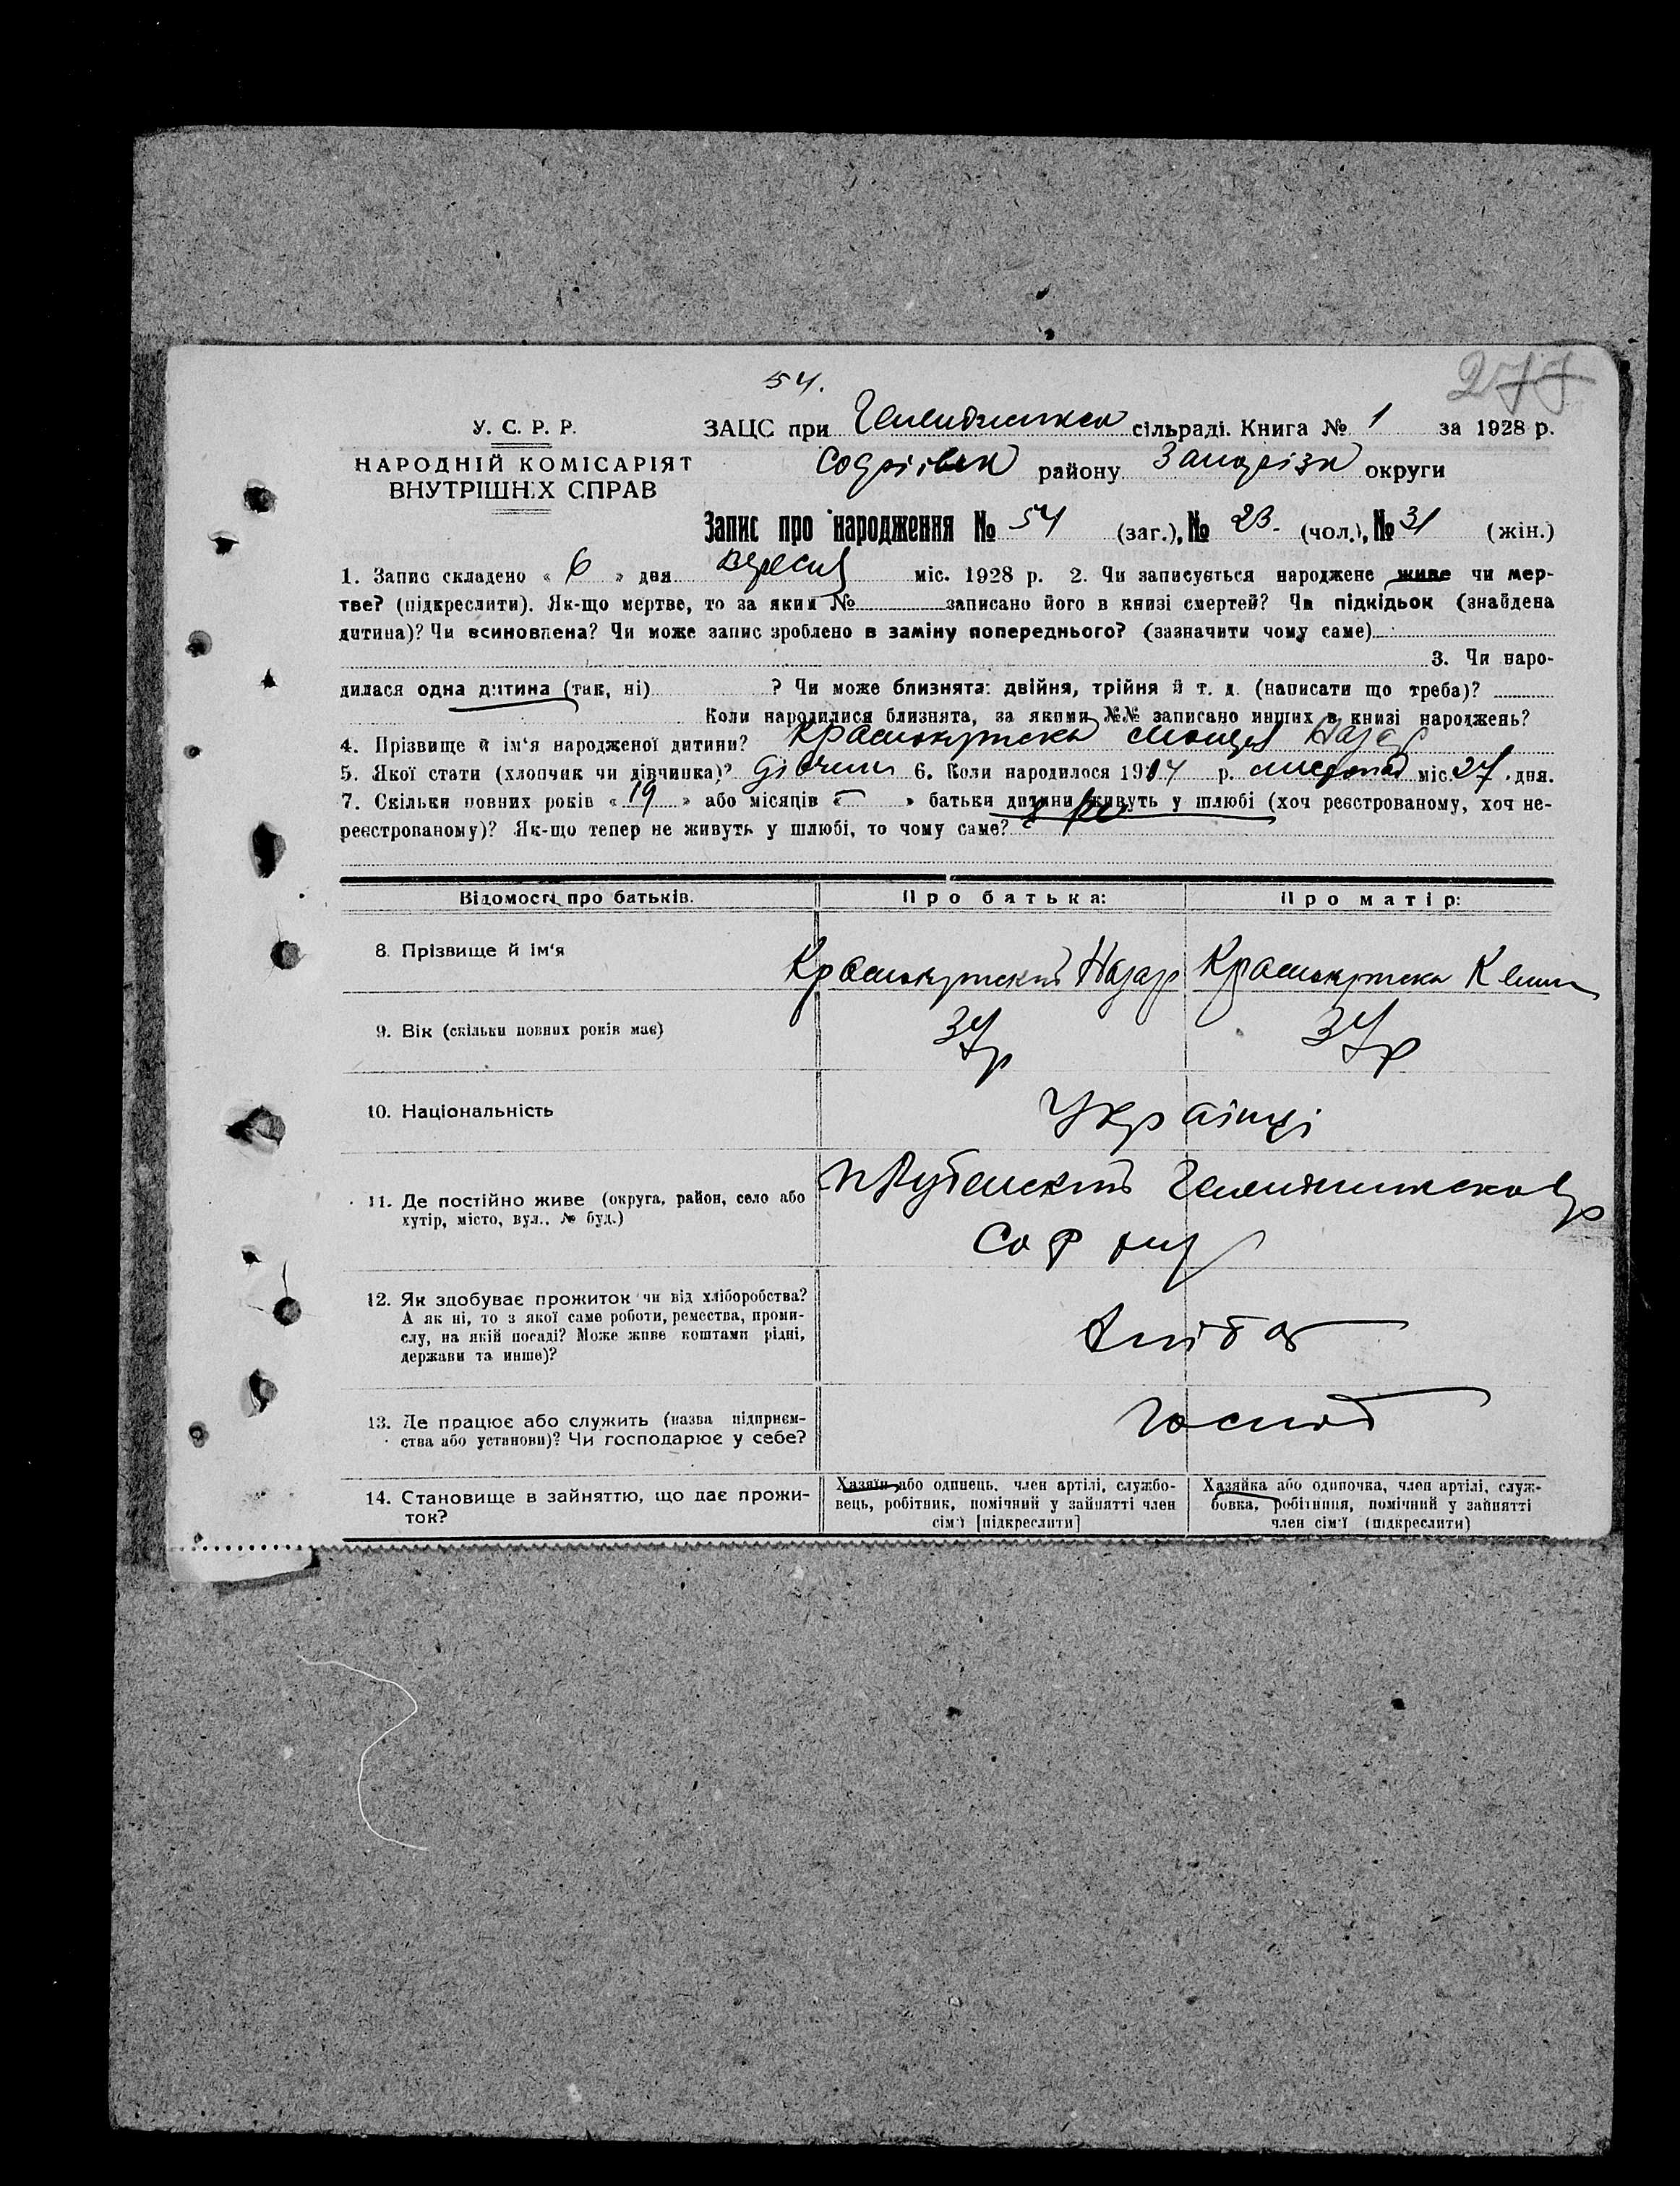 277
54.
У. С. Р. Р.
НАРОДНІЙ КОМІСАРІЯТ
ВНУТРІШНІХ СПРАВ
ЗАЦС при сільраді. Книга № 1 за 1928 р.
району округи
Запис про народження № 54 (заг.), № 23. (чол.), № 31 (жін.)
1. Запис складено « 6 » дня міс. 1928 р. 2. Чи записується народжене живе чи мер-
тве? (підкреслити). Як-що мертве, то за яким № записано його в книзі смертей? Чи підкідьок (знайдена
дитина)? Чи всиновлена? Чи може запис зроблено в заміну попереднього? (зазначити чому саме)
3. Чи наро-
дилася одна дитина (так, ні) ? Чи може близнята: двійня, трійня й т. д. (написати що треба)?
Коли народилися близнята, за якими №№ записано инших в книзі народжень?
4. Прізвище й ім'я народженої дитини? Краснокутска Назар
5. Якої стати (хлопчик чи дівчинка)? 6. Коли народилося 1914 р. листопад міс. 27 дня.
7. Скільки повних років « 19 » або місяців « — » батьки дитини живуть у шлюбі (хоч реєстрованому, хоч не-
реєстрованому)? Як-що тепер не живуть у шлюбі, то чому саме?
Відомості про батьків. Про батька: Про матір:
8. Прізвище й ім'я Краснокутский Назар Краснокутска
9. Вік (скільки повних років має) 37 р 37 р
10. Національність Українці
11. Де постійно живе (округа, район, село або
хутір, місто, вул., № буд.)
12. Як здобуває прожиток чи від хліборобства?
А як ні, то з якої саме роботи, ремества, проми-
слу, на якій посаді? Може живе коштами рідні,
держави та инше)?
13. Де працює або служить (назва підприєм-
ства або установи)? Чи господарює у себе? господ
14. Становище в зайняттю, що дає прожи-
ток?
Хазяїн або одинець, член артілі, службо-
вець, робітник, помічний у зайнятті член
сім'ї [підкреслити]
Хазяйка або одиночка, член артілі, служ-
бовка, робітниця, помічний у зайнятті
член сім'ї (підкреслити)